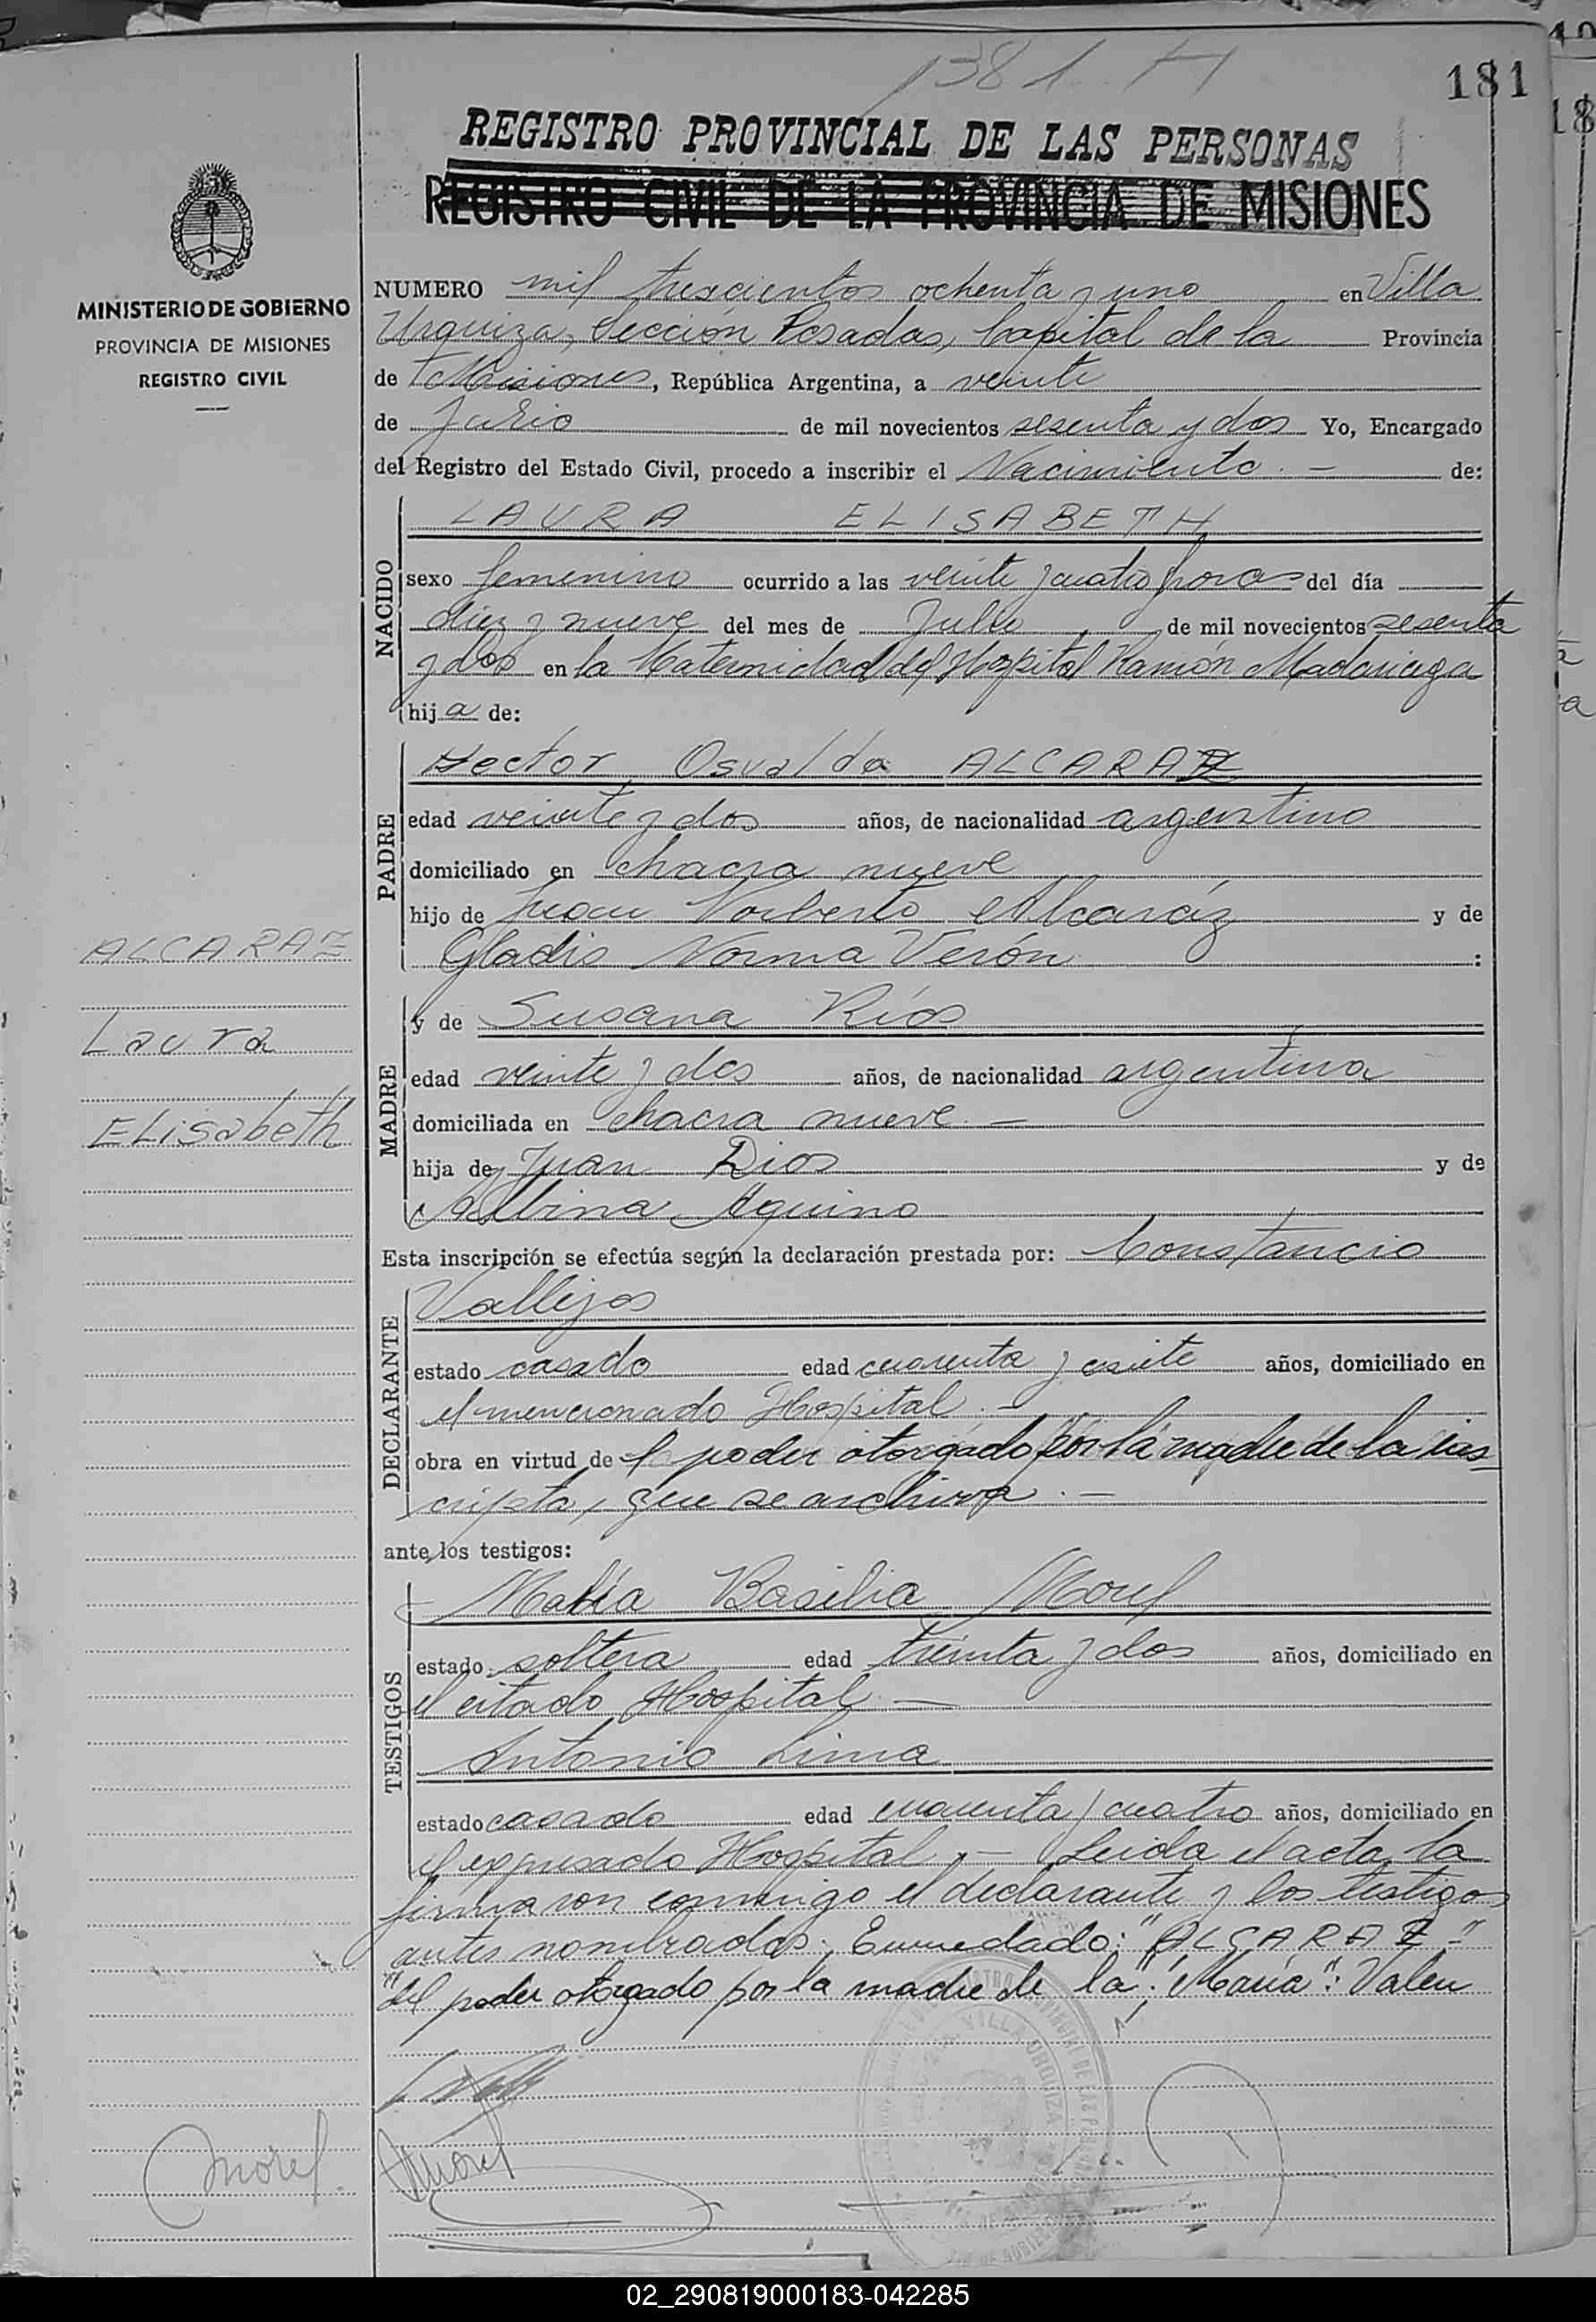 1381 H
181
REGISTRO PROVINCIAL DE LAS PERSONAS
REGISTRO CIVIL DE LA PROVINCIA DE MISIONES
MINISTERIO DE GOBIERNO
PROVINCIA DE MISIONES
REGISTRO CIVIL
NUMERO mil trescientos ochenta y uno en Villa
Urquiza, Sección Posadas, Capital de la Provincia
de Misiones, República Argentina, a veinte
de Julio de mil novecientos sesenta y dos Yo, Encargado
del Registro del Estado Civil, procedo a inscribir el Nacimiento. — de:
NACIDO
LAURA ELISABETH
sexo femenino ocurrido a las veinte y cuatro horas del día
diez y nueve del mes de Julio de mil novecientos sesenta
y dos en la Maternidad del Hospital Ramón Madariaga
hija de:
PADRE
Hector Osvaldo ALCARAZ
edad veinte y dos años, de nacionalidad argentino
domiciliado en chacra nueve
hijo de Juan Norberto Alcaráz y de
Gladis Norma Verón :
MADRE
y de Susana Ríos
edad veinte y dos años, de nacionalidad argentina
domiciliada en chacra nueve. —
hija de Juan Rios y de
Albina Aquino
ALCARAZ
Laura
ELisabeth
Esta inscripción se efectúa según la declaración prestada por: Constancio
DECLARANTE
Vallejos
estado casado edad cuarenta y siete años, domiciliado en
el mencionado Hospital. —
obra en virtud de el poder otorgado por la madre de la ins
cripta, que se archiva. —
ante los testigos:
TESTIGOS
María Basilia Morel
estado soltera edad treinta y dos años, domiciliado en
el citado Hospital. —
Antonio Lima
estado casado edad cuarenta y cuatro años, domiciliado en
el expresado Hospital. — Leida el acta, la
firmaron conmigo el declarante y los testigos
antes nombrados. Enmedado: "ALCARAZ"
"del poder otorgado por la madre de la"; "María": Valen
Morel
Morel
VILLA URQUIZA
02_290819000183-042285